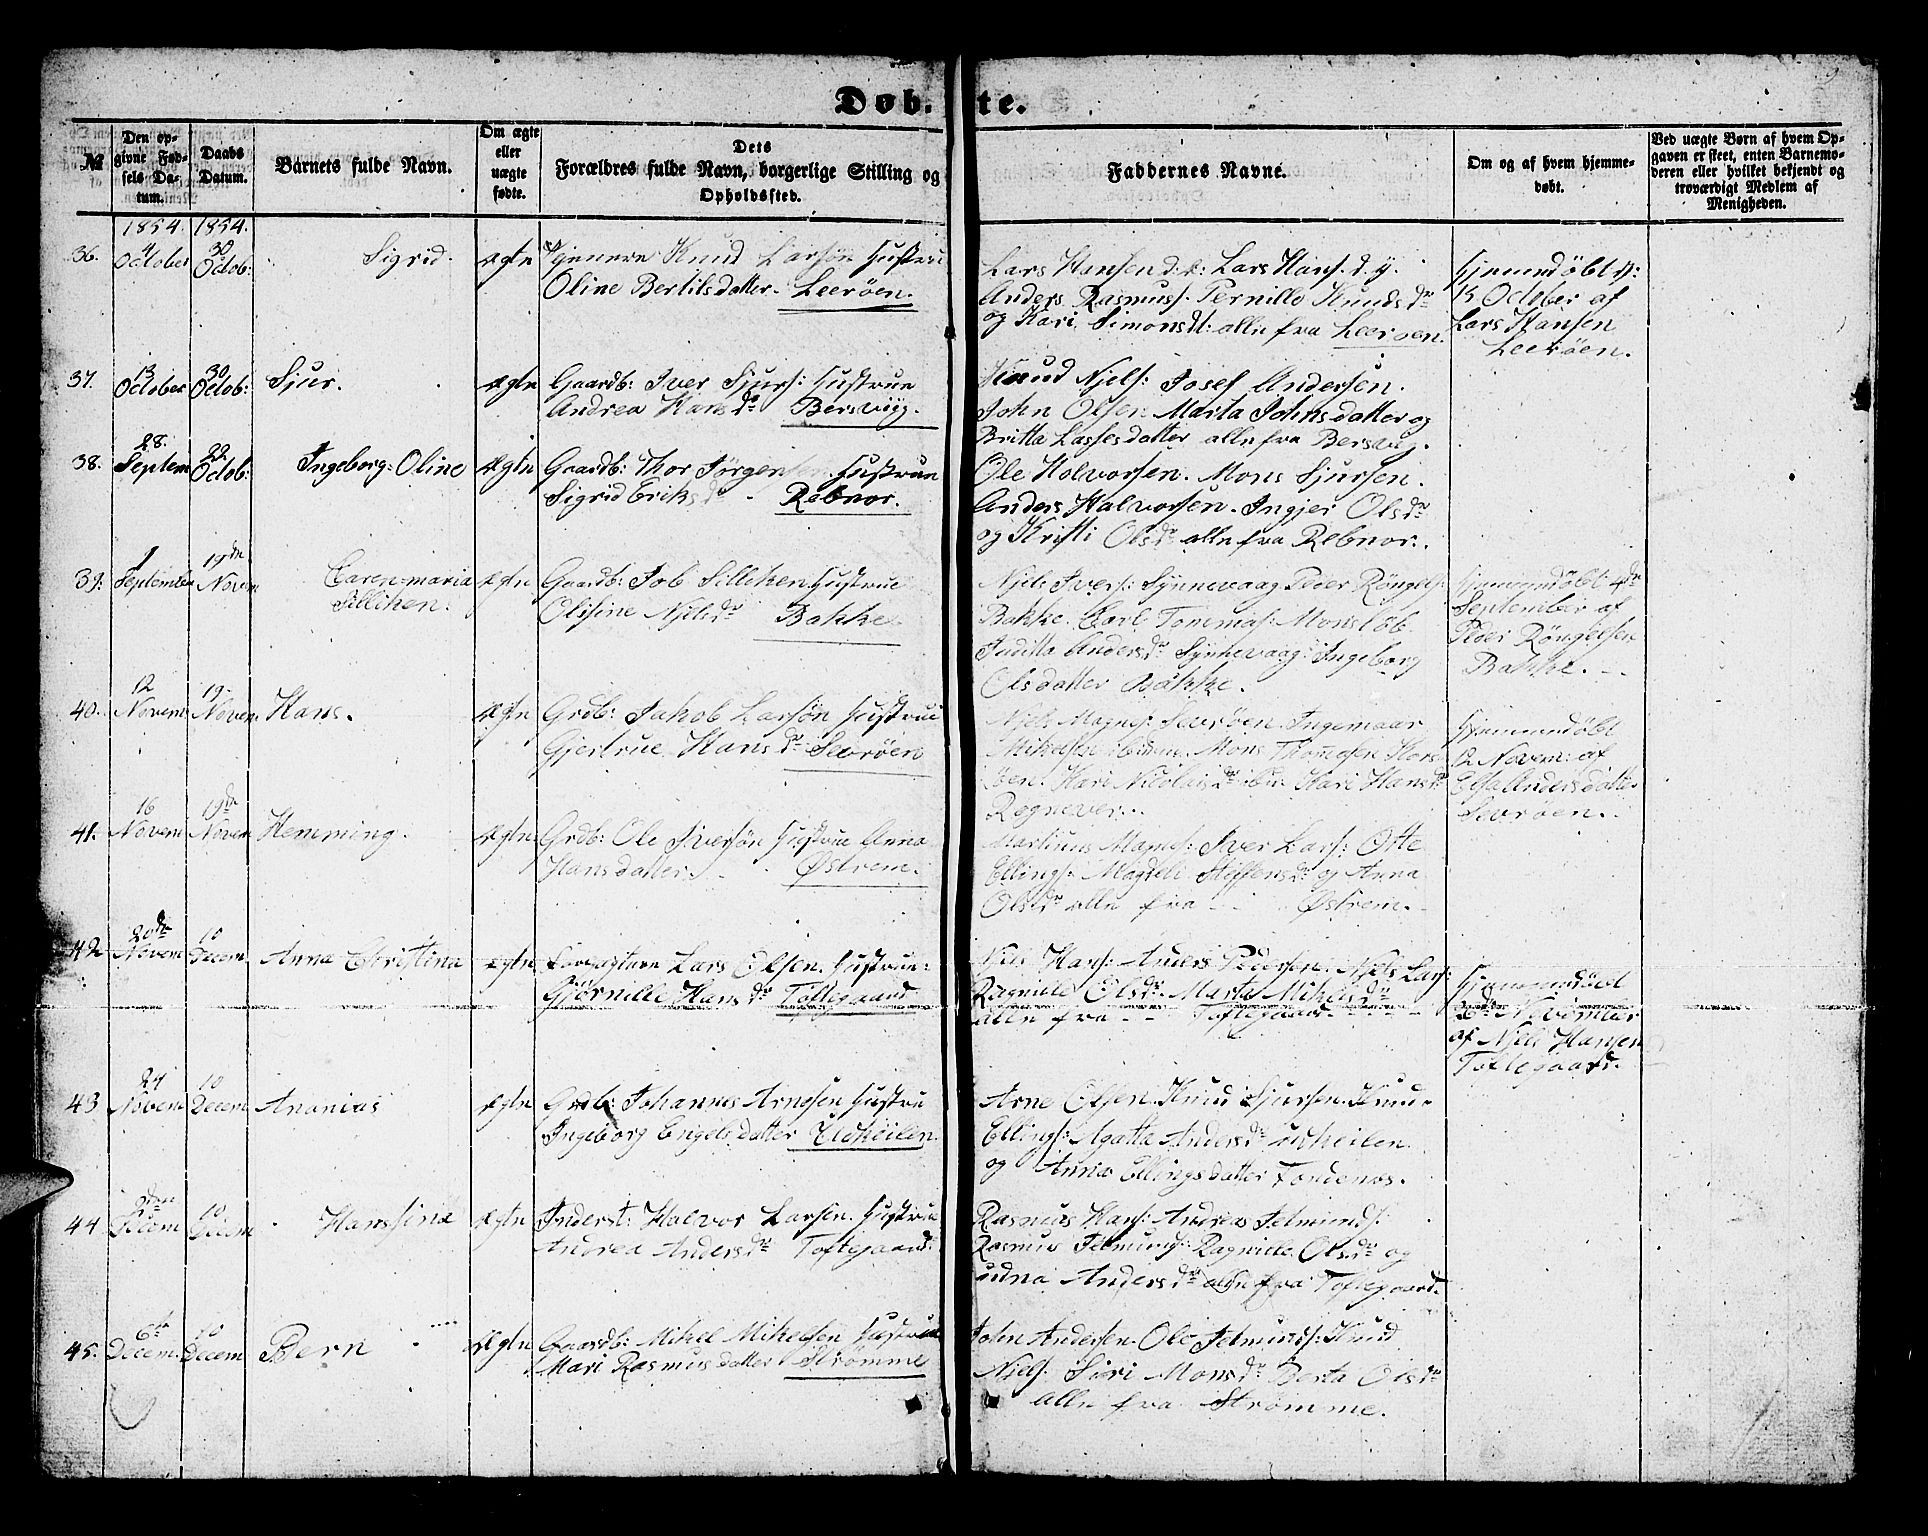 9
Døb-te.
№
Den op-
givne Fød-
sels Da-
tum.
Daabs
Datum.
Barnets fulde Navn.
Om ægte
eller
uægte
fødte.
Dets
Forældres fulde Navn, borgerlige Stilling og
Opholdssted.
Faddernes Navne.
Om og af hvem hjemme-
døbt.
Ved uægte Børn af hvem Op-
gaven er skeet, enten Barnemo-
deren eller hvilket bekjendt og
troværdigt Medlem af
Menigheden.
1854. 1854.
36.
4
October
30
Octob:
Sigrid.
ægte
Knud Larsøn Hustru
Oline Bertilsdatter. Leerøen.
Lars Hansen d: æ: Lars Hans. d. y.
Anders Rasmuss. Pernille Knudsdr
og Kari Simonsd: alle fra Leerøen.
Hjemmedøbt d:
15 October af
Lars Hansen
Leerøen.
37.
13
October
30
Octob:
Sjur.
ægte
Gaardb: Iver Sjurs: Hustrue
Andrea Hansdr Bersvig.
Knud Njels: Josef Andersen.
John Olsen. Marta Johnsdatter og
Britta Lassesdatter alle fra Bersvig.
38.
28.
Septem
22
Octob:
Ingeborg Oline
ægte
Gaardb: Thor Jørgensen. Hustrue
Sigrid Eriksdr Rebnor.
Ole Halvorsen. Mons Sjursen.
Anders Halvorsen. Ingjer Olsdr
og Kristi Olsdr alle fra Rebnor.
39.
1
September
19de
Novem
Caren-maria
Sillihen.
ægte
Gaardb: Job Sillihen Hustrue
Olisine Njelsdr Bakke
Njels Ivers: Synnevaag Peder Röngels:
Bakke. Carl Tommas: Monsløb.
Juditta Andersdr Synnevaag. Ingeborg
Olsdatter Bakke.
Hjemmedøbt 4de
September af
Peder Röngelsen
Bakke.
40.
12
Novem:
19.
Novem
Hans.
ægte
Grdb: Jakob Larsøn Hustrue
Gjertrue Hansdr Sevrøen
Njels Magnes: Sevrøen. Ingemaar
Mikelsen ibidm. Mons Thomasen Hors-
øen. Kari Nicolaisdr ibm. Kari Hansdr
Rognever.
Hjemmedøbt
12 Novem: af
Elsa Andersdatter
Sevrøen.
41.
16
Novem
19de
Novem
Hemming.
ægte
Grdb: Ole Iversøn Hustrue Anna
Hansdatter. Østrem.
Martinus Magnes: Iver Lars: Otte
Ellings: Magdeli Steffensdr og Anna
Olsdr alle fra Østrem.
42
20de
Novem
10
Decem
Anna Christina
ægte
Lars Olsen. Hustrue:
Gjörnille Hansdr Toftegaard
Niels Hans: Anders Pedersen. Njels Lars:
Ragnile Olsdr. Marta Mikelsdr
alle fra Toftegaard.
Hjemmedøbt
Novembr
af Njels Hansen
Toftegaard.
43
24
Novem
10
Decem
Ananias
ægte
Grdb: Johannes Arnesen Hustru
Ingeborg Engelsdatter Udheilen
Arne Olsen. Knud Sjursen. Knud
Ellings: Agatta Andersdr udheilen
og Anna Ellingsdatter Tordenes.
44
Decem
10
Decem
Hanssina
ægte
Inderst: Halvor Larsen. Hustrue
Andrea Andersdr Toftegaard.
Rasmus Hans: Andreas Jelmunds:
Rasmus Jelmunds: Ragnille Olsdr og
Andersdr alle fra Toftegaard.
45.
6te
Decem.
10
Decem
Bern
ægte
Gaardb: Mikel Mikelsen Hustrue
Mari Rasmusdatter Strömme
John Andersen. Ole Jelmunds: Knud
Njels. Siri Monsdr Berta Olsdr
alle fra Strömme.